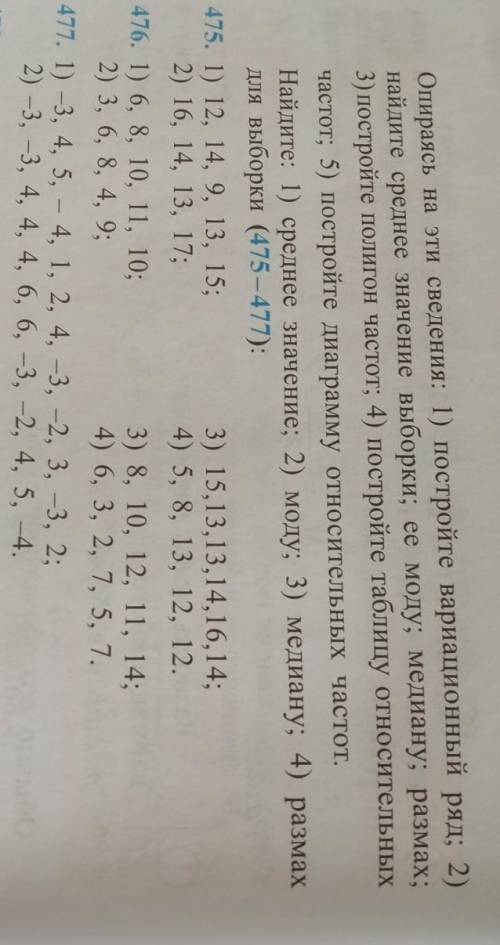 Опираясь на эти сведения: 1) постройте вариационный ряд; 2)
найдите среднее значение выборки; ее моду; медиану; размах;
3) постройте полигон частот; 4) постройте таблицу относительных
частот; 5) постройте диаграмму относительных частот.
Найдите: 1) среднее значение; 2) моду; 3) медиану; 4) размах
для выборки (475–477):
475. 1) 12, 14, 9, 13, 15; 3) 15,13,13,14,16,14;
2) 16, 14, 13, 17; 4) 5, 8, 13, 12, 12.
476. 1) 6, 8, 10, 11, 10; 3) 8, 10, 12, 11, 14;
2) 3, 6, 8, 4, 9; 4) 6, 3, 2, 7, 5, 7.
477. 1) –3, 4, 5, – 4, 1, 2, 4, –3, –2, 3, –3, 2;
2) –3, –3, 4, 4, 4, 6, 6, –3, –2, 4, 5, –4.